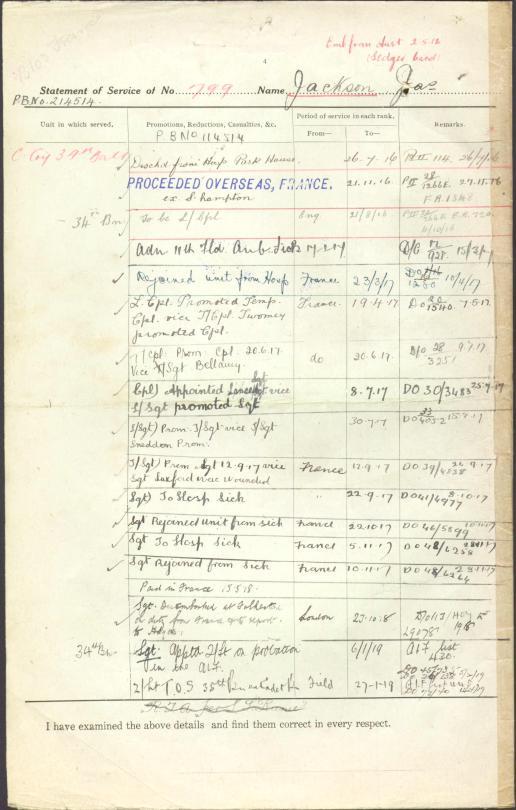 Emb from Aust 2.5.16
(Ledger Card)
4
Statement of Service of No. 799 Name Jackson Jas
P.B.No. 214514.
Unit in which served.
Promotions, Reductions, Casualties, &c.
Period of service in each rank.
From—
To—
Remarks.
P.B No 114514
C Coy 34th Battn
Dischd from Hosp Park House. 26.7.16 Pt II 114. 26/7/16
PROCEEDED OVERSEAS, FRANCE. 21.11.16 Pt II 28 1266E 27.11.16
ex S'hampton F.R. 1348
34th Bn
to be L/Cpl Eng 21/8/16
4/10/16
Adm 11th Fld Amb. Sick 17.2.17 15/3/17
Rejoined unit from Hosp France 23/3/17 10/4/17
L. Cpl. Promoted Temp. France. 19.4.17 DO 20 1540. 7.5.17
Cpl. vice T/Cpl. Twomey
promoted Cpl.
T/Cpl. Prom. Cpl. 20.6.17. do 20.6.17. D/O 28 3251 9.7.17
vice L/Sgt Bellamy.
Cpl) Appointed Lance Sgt vice 8.7.17 DO 30/3483 25.7.17
L/Sgt promoted Sgt
L/Sgt) Prom. T/Sgt vice S/Sgt 30.7.17
Sneddon Prom.
T/Sgt) Prom Sgt 12.9.17 vice France 12.9.17 DO 39/4838 26.9.17
Sgt Saxford wounded
Sgt) To Hosp Sick " 22.9.17 DO 41/4977 8.10.17
Sgt Rejoined Unit from sick France 22.10.17 DO 46/5899 10.11.17
Sgt To Hosp Sick France 5.11.17 DO 48/6258 23.11.17
Sgt Rejoined from Sick France 10.11.17 DO 48/6264 23.11.17
Paid in France 13.5.18.
Sgt. Disembarked at Folkestone London 23.10.18
on duty from France & to report
to
34th Bn
Sgt. Apptd 2/Lt on probation 6/1/19 AIF list
in the A.I.F. 430.
2/Lt T.O.S. 35th Bn ex Cadet Bn Field 27-1-19
I have examined the above details and find them correct in every respect.